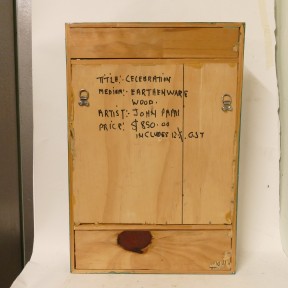 TITLE:- CELEBRATION
MEDIUM:- EARTHENWARE
WOOD.
ARTIST:- JOHN PAPAI
PRICE:- $850.00
INCLUDES 12½% GST